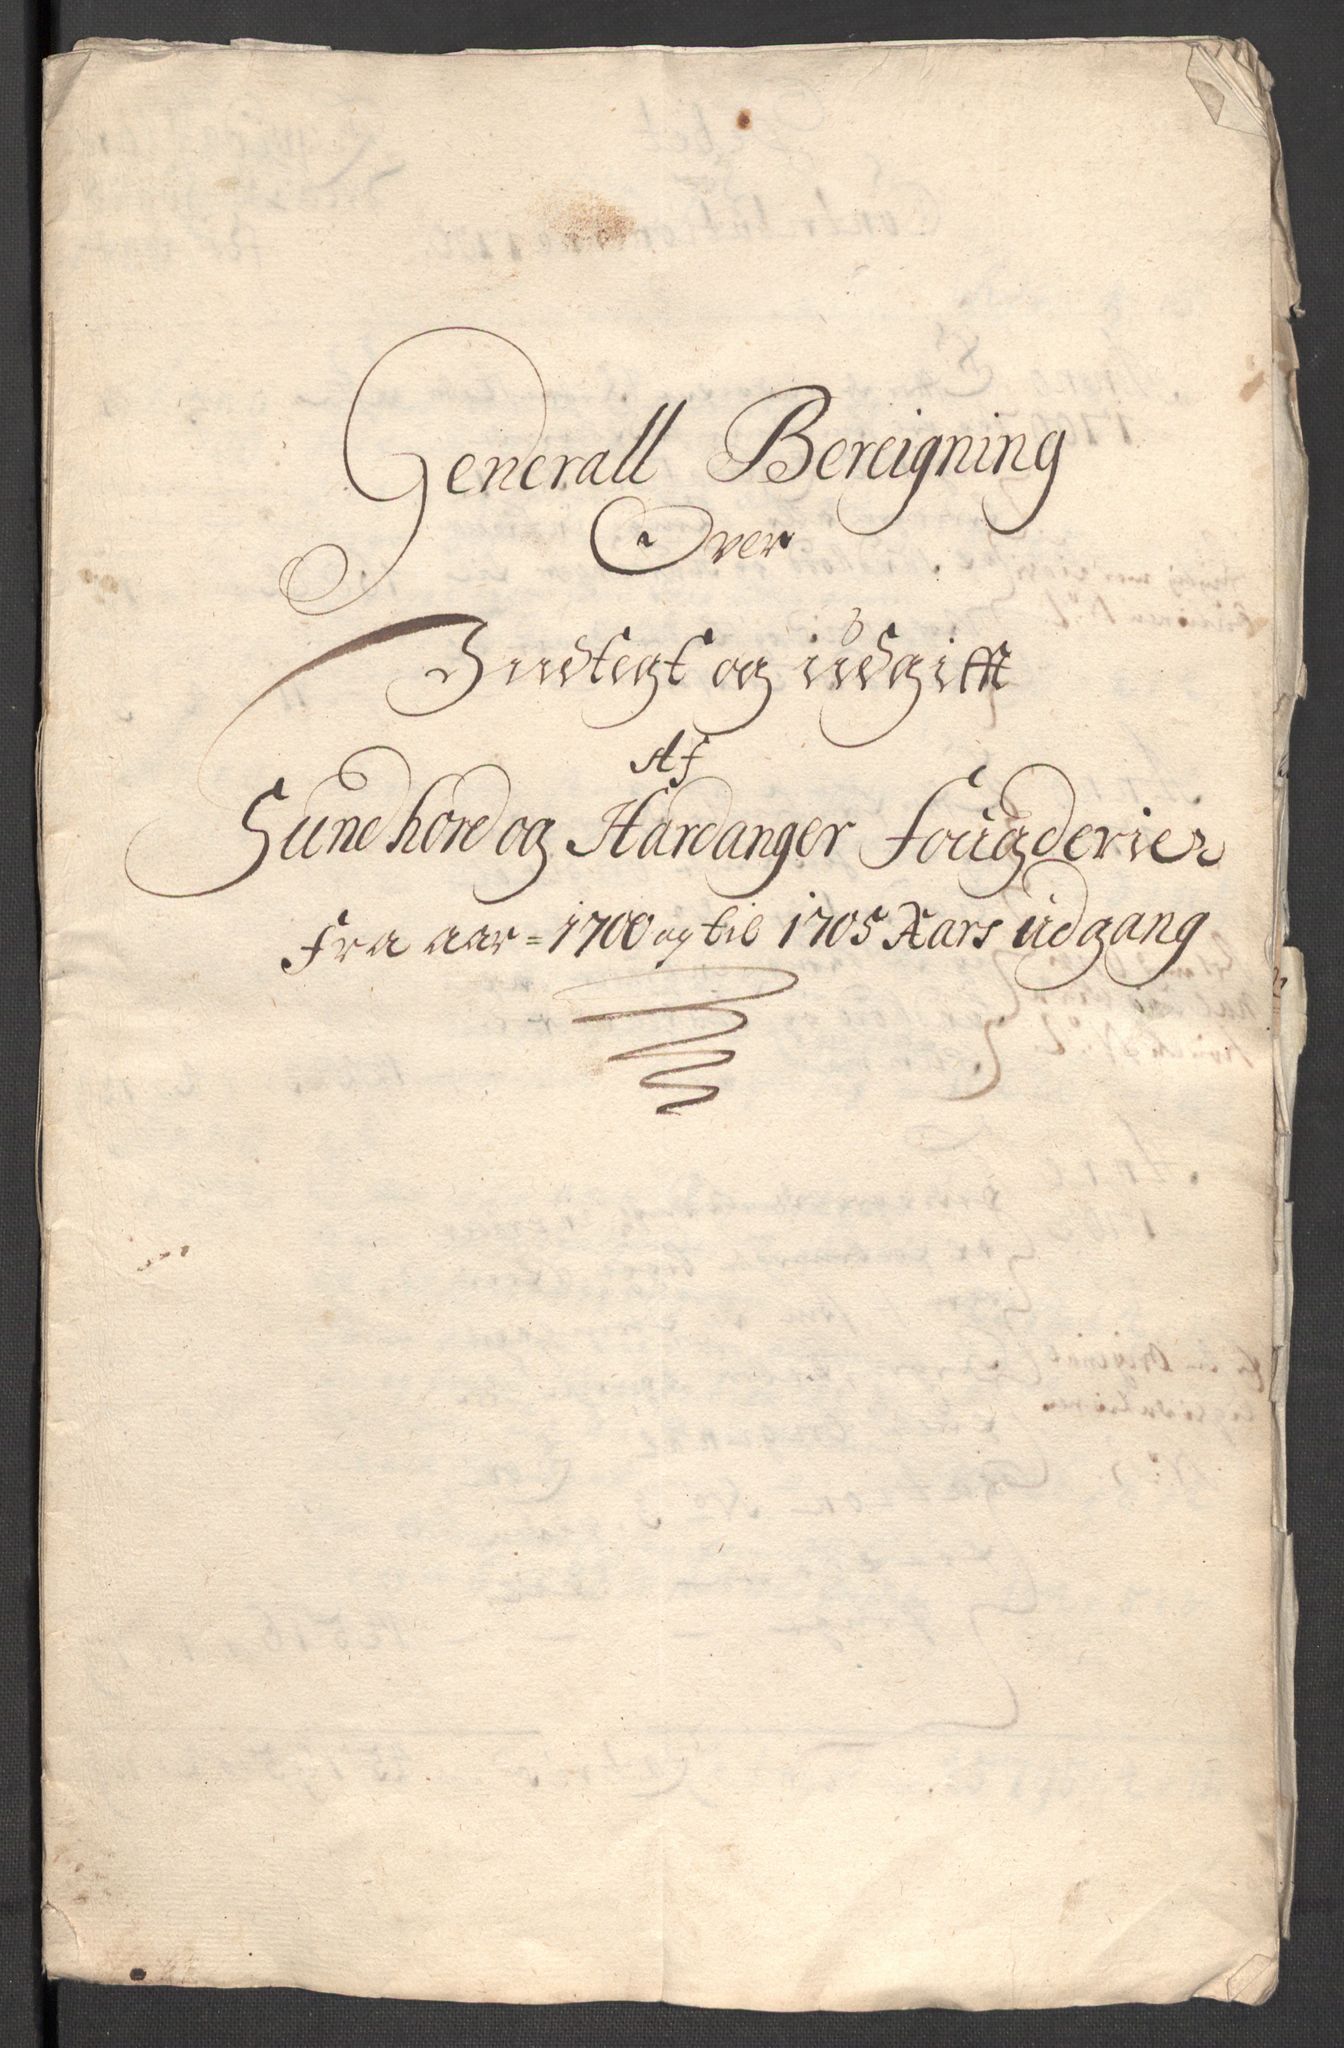 Generall Bereigning
Over
Indtegt og üdgifft
Af
Sundhord og Hardanger Fougderier
fra aar = 1700 og til 1705 Aars üdgang